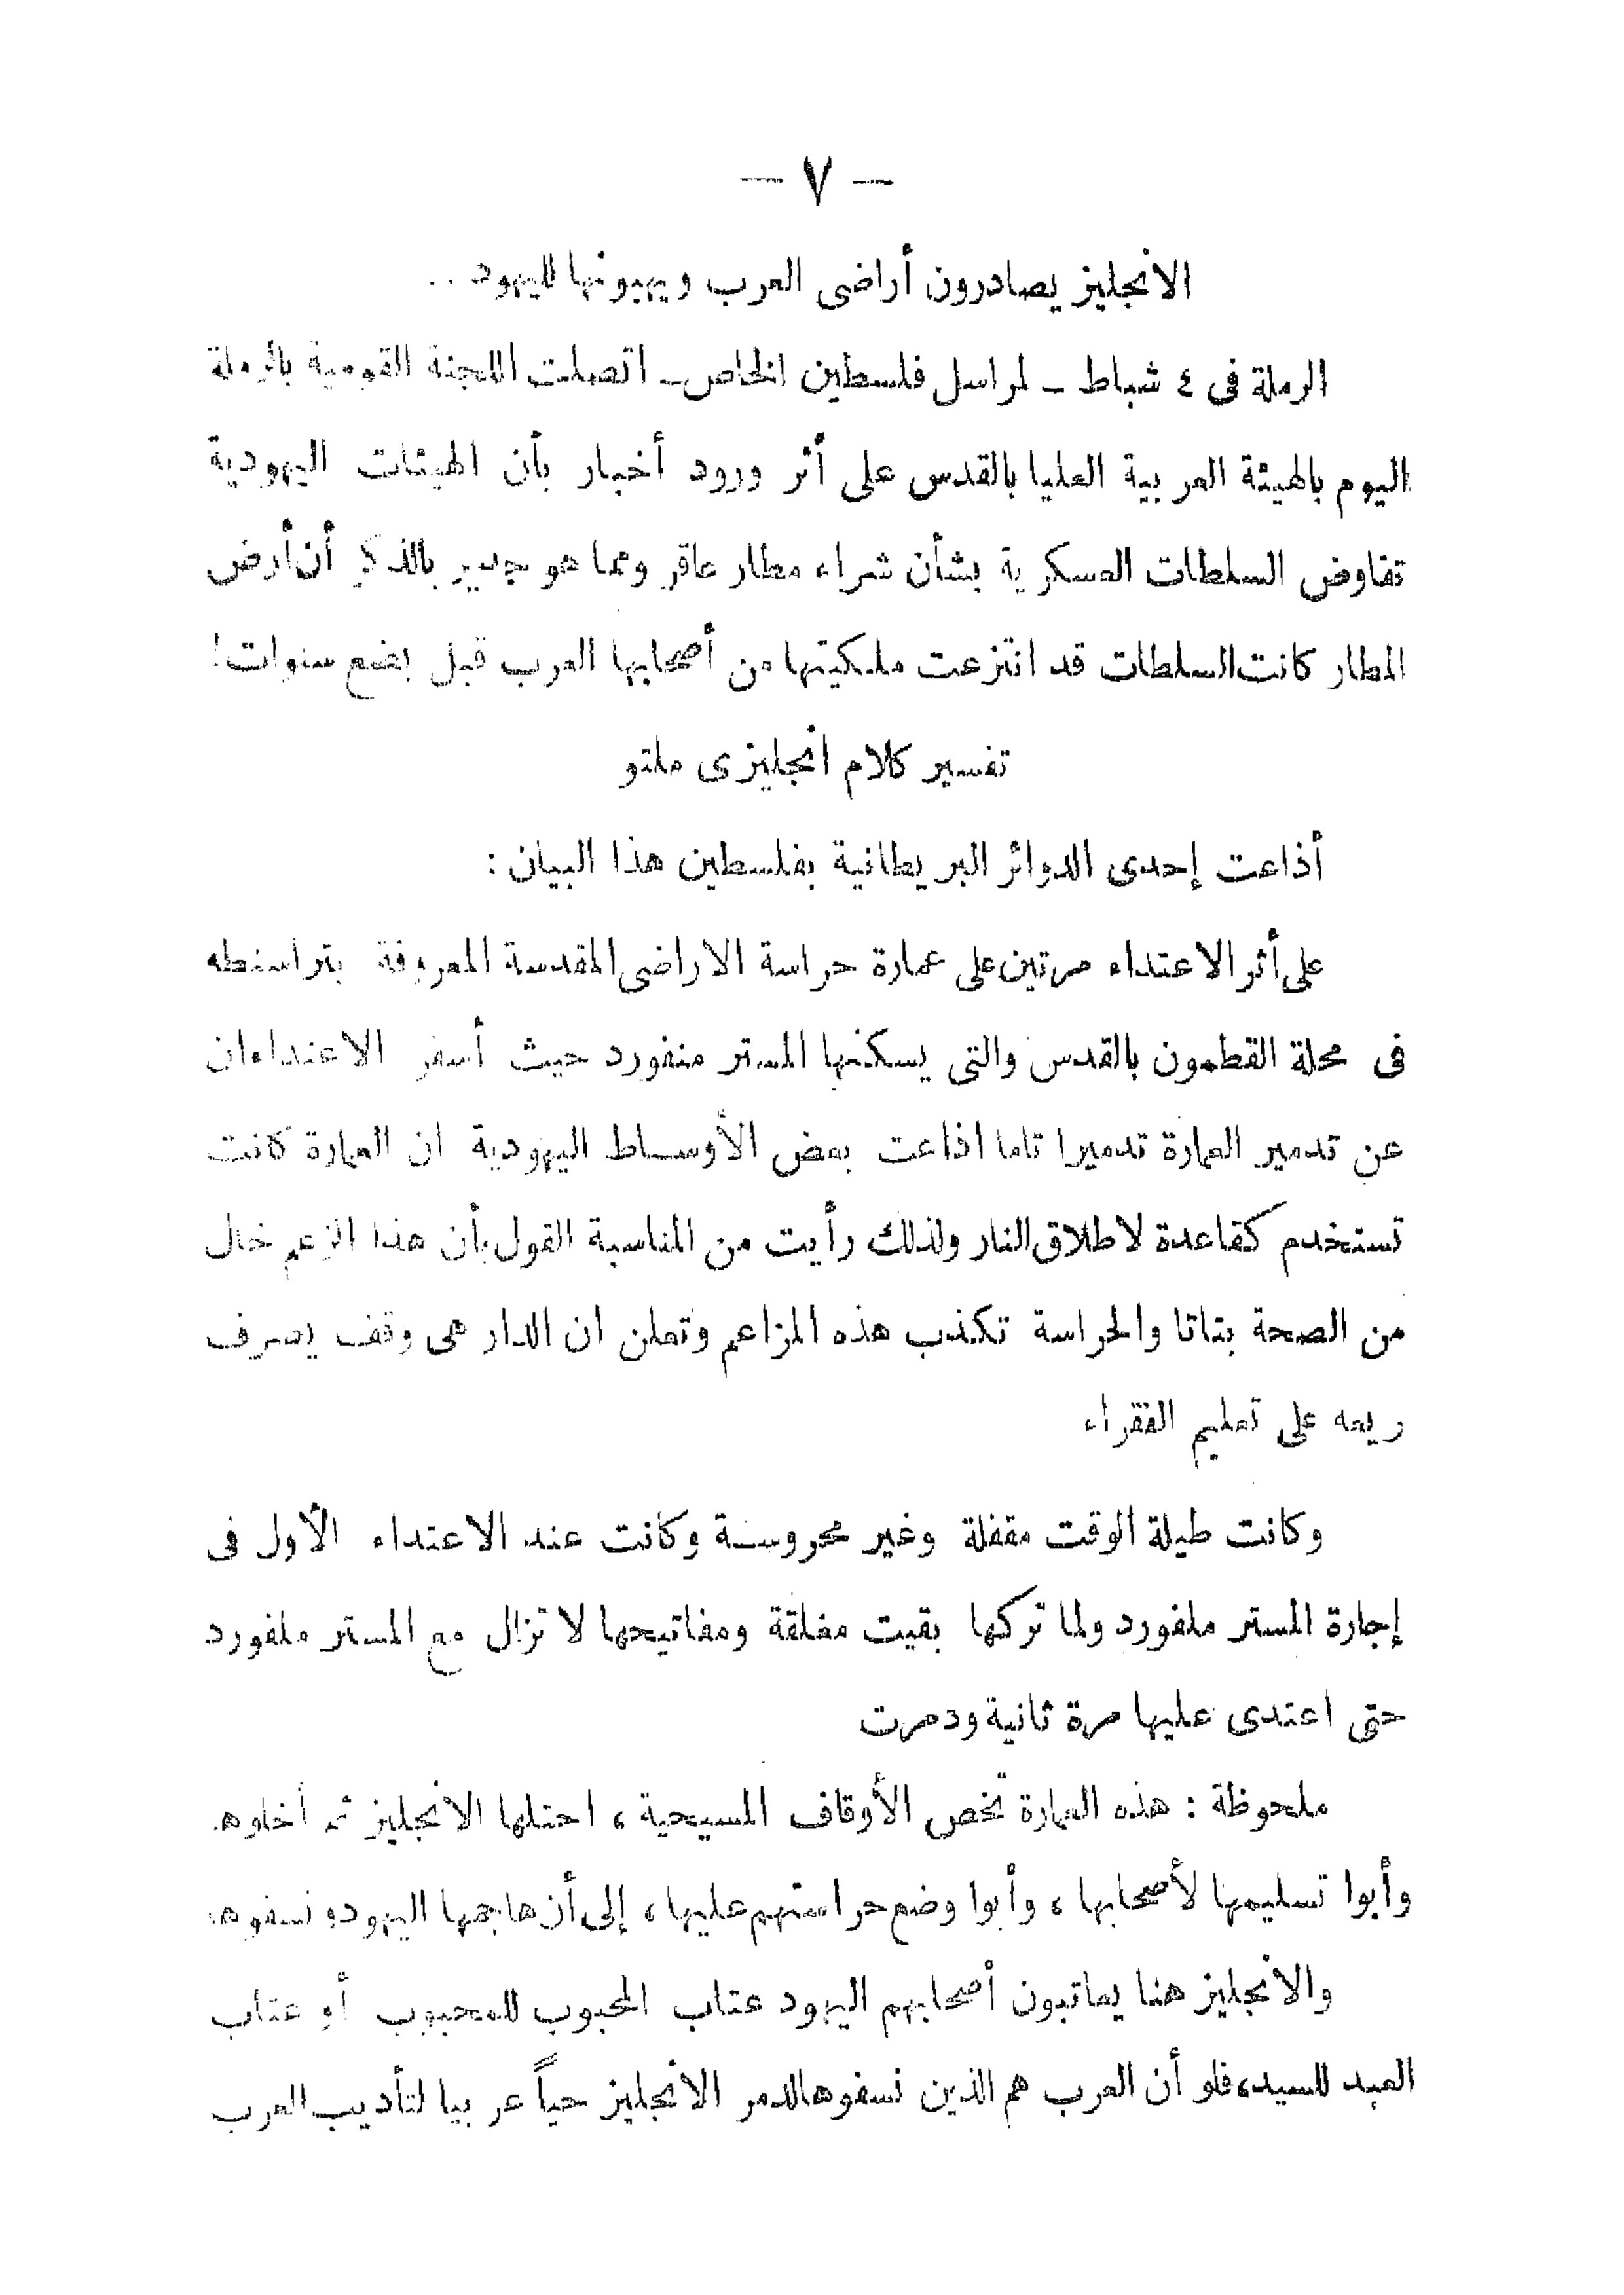 — ٧ —
الانجليز يصادرون أراضى العرب ويهبونها لليهود . .
الرملة فى ٤ شباط — لمراسل فلسطين الخاص — اتصلت اللجنة القومية بالرملة
اليوم بالهيئة العربية العليا بالقدس على أثر ورود أخبار بأن الهيئات اليهودية
تفاوض السلطات العسكرية بشأن شراء مطار عاقر ومما هو جدير بالذكر أن أرض
المطار كانت السلطات قد انتزعت ملكيتها من أصحابها العرب قبل بضع سنوات !
تفسير كلام انجليزى ملتو
أذاعت إحدى الدوائر البريطانية بفلسطين هذا البيان :
على أثر الاعتداء مرتين على عمارة حراسة الاراضى المقدسة المعروفة بتراسنطه
فى محلة القطمون بالقدس والتى يسكنها المستر منفورد حيث أسفر الاعتداءان
عن تدمير العمارة تدميرا تاما اذاعت بعض الأوساط اليهودية ان العمارة كانت
تستخدم كقاعدة لاطلاق النار ولذلك رأيت من المناسبة القول بأن هذا الزعم خال
من الصحة بتاتا والحراسة تكذب هذه المزاعم وتعلن ان الدار هى وقف يصرف
ريعه على تعليم الفقراء
وكانت طيلة الوقت مقفلة وغير محروسة وكانت عند الاعتداء الأول فى
إجارة المستر ملفورد ولما تركها بقيت مغلقة ومفاتيحها لا تزال مع المستر ملفورد
حتى اعتدى عليها مرة ثانية ودمرت
ملحوظة : هذه العمارة تخص الأوقاف المسيحية ، احتلها الانجليز ثم أخلوها
وأبوا تسليمها لأصحابها ، وأبوا وضع حراستهم عليها ، إلى أن هاجمها اليهود ونسفوها
والانجليز هنا يعاتبون أصحابهم اليهود عتاب المحبوب للمحبوب أو عتاب
العبد للسيد، فلو أن العرب هم الذين نسفوها لدمر الانجليز حياً عربيا لتأديب العرب